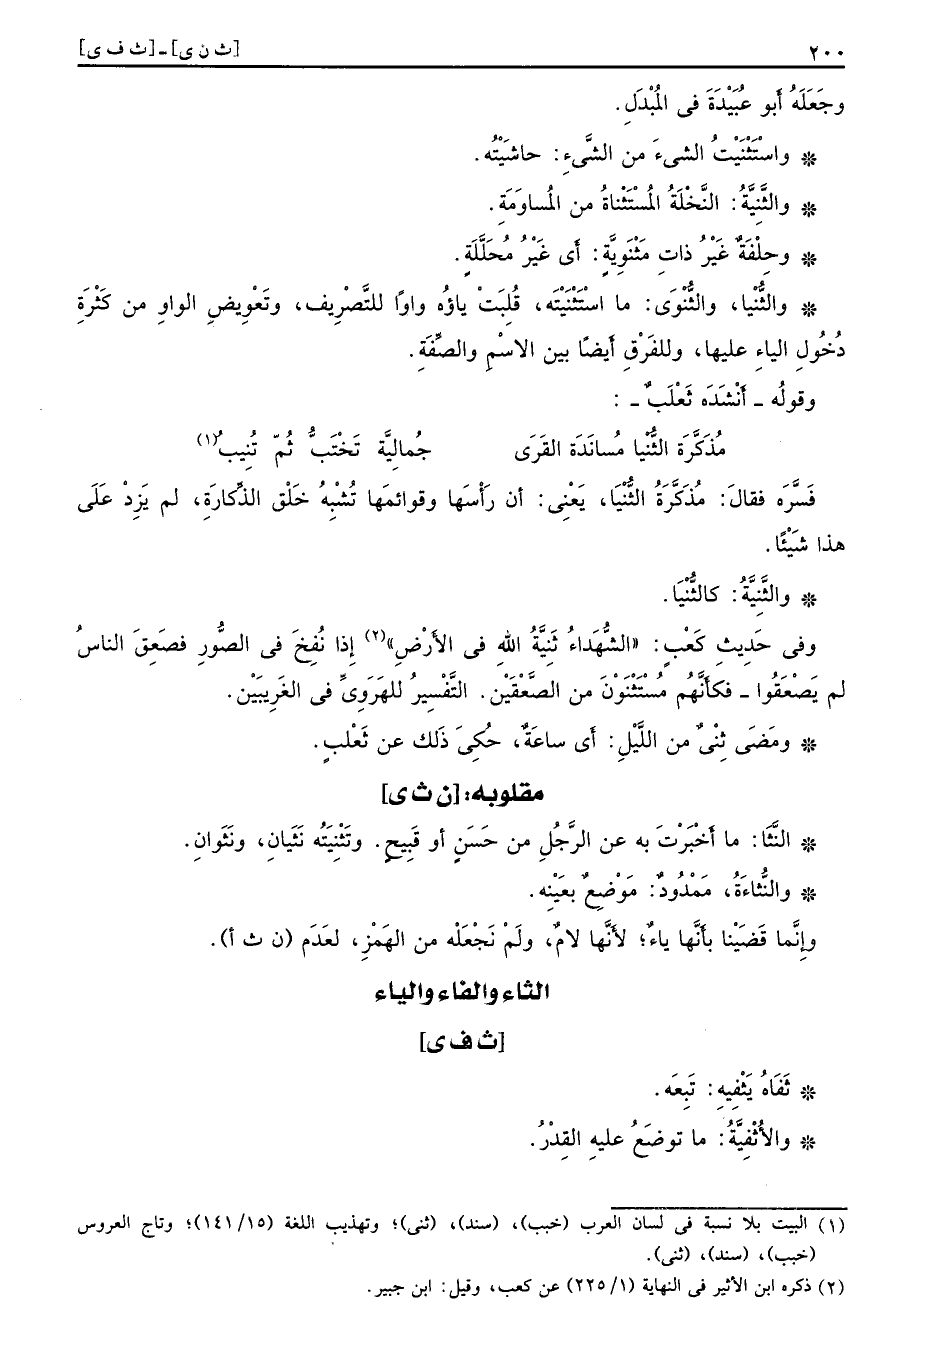 ٢٠٠ [ث ن ى] ـ [ث ف ى]
وجَعَلَهُ أَبو عُبَيْدَةَ فى المُبْدَلِ.
* واستَثْنَيْتُ الشىءَ من الشَّىءِ: حاشَيْتُه.
* والثَّنِيَّةُ: النَّخْلَةُ المُسْتَثْناةُ من المُساوَمَةِ.
* وحِلْفَةٌ غَيْرُ ذاتِ مَثْنَوِيَّةٍ: أَى غَيْرُ مُحَلَّلَةٍ.
* والثُّنْيا، والثُّنْوَى: ما اسْتَثْنَيْتَه، قُلِبَتْ ياؤُه واوًا للتَّصْرِيف، وتَعْوِيضِ الواوِ من كَثْرَةِ
دُخُولِ الياءِ عليها، وللفَرْقِ أَيضًا بين الاسْمِ والصِّفَةِ.
وقولُه ـ أَنْشَدَه ثَعْلَبٌ ـ :
مُذَكَّرَة الثُّنْيا مُسانَدَة القَرَى جُمالِيَّة تَخْتَبُّ ثُمّ تُنِيبُ(١)
فَسَّرَه فقالَ: مُذَكَّرَةُ الثُّنْيَا، يَعْنِى: أن رَأْسَها وقوائمَها تُشْبِهُ خَلْقَ الذِّكارَةِ، لم يَزِدْ عَلَى
هذا شَيْئًا.
* والثَّنِيَّةُ: كالثُّنْيَا.
وفى حَدِيثِ كَعْبٍ: «الشُّهَداءُ ثَنِيَّةُ اللهِ فى الأَرْضِ»(٢) إِذا نُفِخَ فى الصُّورِ فصَعِقَ الناسُ
لم يَصْعَقُوا ـ فكأَنَّهُم مُسْتَثْنَوْنَ من الصَّعْقَيْنِ. التَّفْسِيرُ للهَرَوِىِّ فى الغَرِيبَيْنِ.
* ومَضَى ثِنْىٌ من اللَّيْلِ: أَى ساعَةٌ، حُكِىَ ذَلك عن ثَعْلبٍ.
مقلوبه: [ن ث ى]
* النَّثَا: ما أَخْبَرْتَ به عن الرَّجُلِ من حَسَنٍ أو قَبِيحٍ. وتَثْنِيَتُه نَثَيانِ، ونَثَوانِ.
* والنُّثاءَةُ، مَمْدُودٌ: مَوْضِعٌ بعَيْنِه.
وإِنَّما قَضَيْنا بأَنَّها ياءٌ؛ لأَنَّها لامٌ، ولَمْ نَجْعَلْه من الهَمْزِ، لعَدَم (ن ث أ).
الثاء والفاء والياء
[ث ف ى]
* ثَفَاهُ يَثْفِيهِ: تَبِعَه.
* والأُثْفِيَّةُ: ما توضَعُ عليهِ القِدْرُ.
(١) البيت بلا نسبة فى لسان العرب (خبب)، (سند)، (ثنى)؛ وتهذيب اللغة (١٤١/١٥)؛ وتاج العروس
(خبب)، (سند)، (ثنى).
(٢) ذكره ابن الأثير فى النهاية (٢٢٥/١) عن كعب، وقيل: ابن جبير.